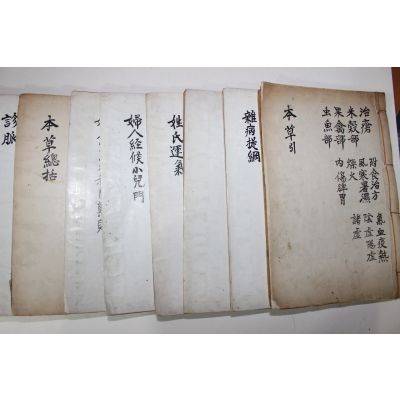 本草引
治瘡
米穀部
果禽部
虫魚部
附食治方
風寒暑濕
燥火
内傷脾胃
氣血痰熱
陰虛陽虛
諸虛
雜病提綱
姓氏運氣
婦人經候小兒門
本草總括
診脈